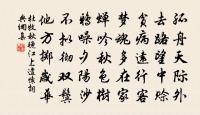 孤舟天際外
去路望中賒
貧病遠行客
夢魂多在家
蟬吟秋色樹
鴉噪夕陽沙
不擬徹雙鬢
他方擲歲華
杜牧秋晚江上遣懷詞